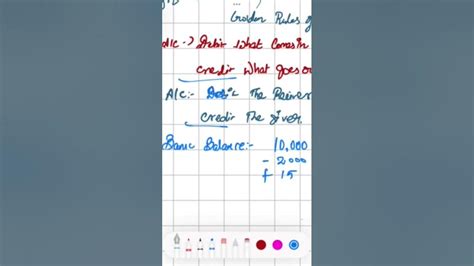 Golden Rules of
A/C -> Debit What Comes in
credit What Goes o
A/C:- Debit The Reiver
credit The giver.
Bank Balance:- 10,000
- 2000
f 15